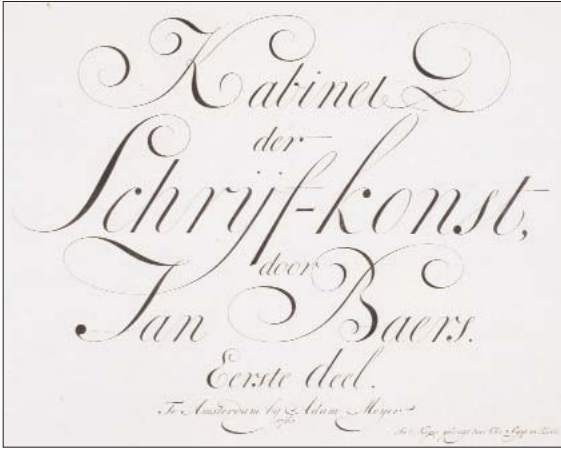 Kabinet
der
Schrijf-konst,
door
Jan Baers.
Eerste deel.
Te Amsterdam by Adam Meyer